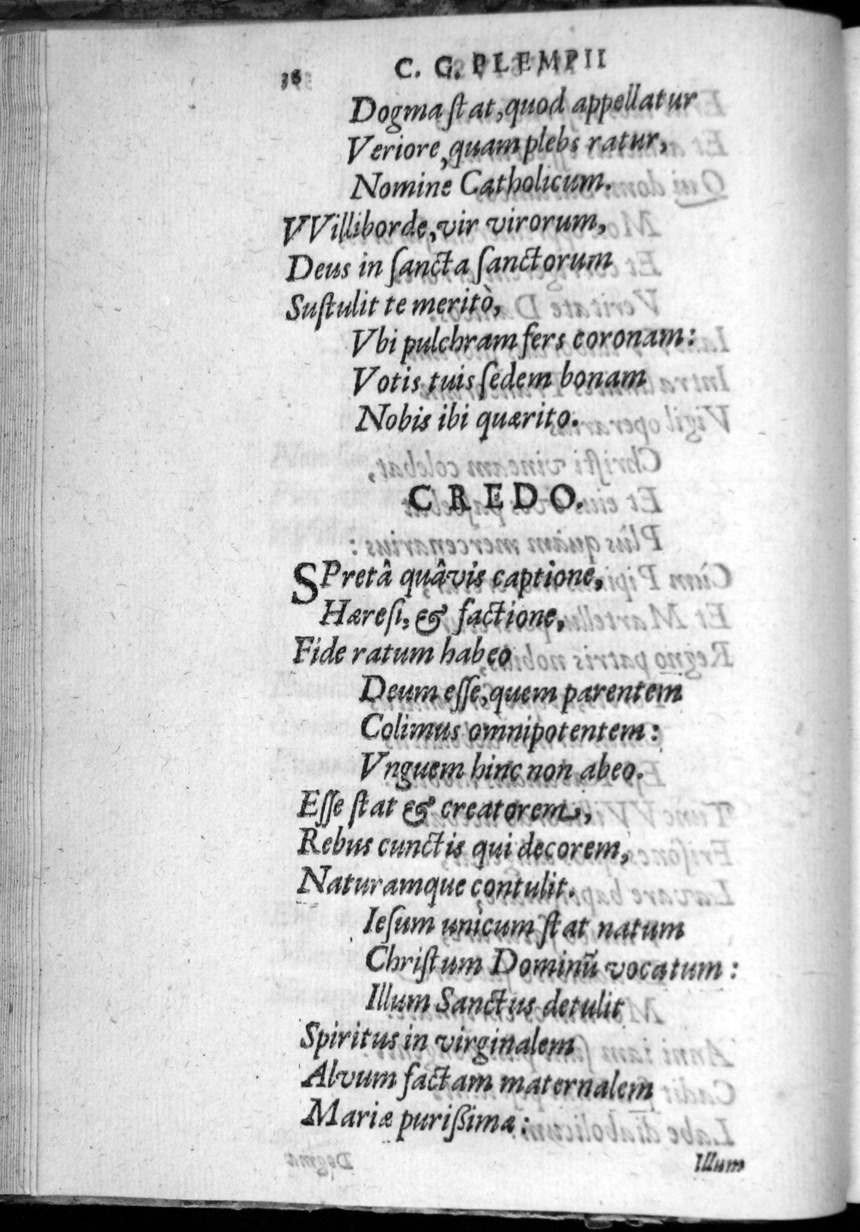 36 C. G. PLEMPII
Dogma ſtat, quod appellatur
Veriore, quam plebs ratur,
Nomine Catholicum.
VVilliborde, vir virorum,
Deus in ſancta ſanctorum
Suſtulit te meritò,
Vbi pulchram fers coronam:
Votis tuis ſedem bonam
Nobis ibi quærito.
CREDO.
SPretâ quâvis captione,
Hæreſi, & factione,
Fide ratum habeo
Deum eſſe, quem parentem
Colimus omnipotentem:
Vnguem hinc non abeo.
Eſſe ſtat & creatorem,
Rebus cunctis qui decorem,
Naturamque contulit.
Ieſum unicum ſtat natum
Chriſtum Dominū vocatum:
Illum Sanctus detulit
Spiritus in virginalem
Alvum factam maternalem
Mariæ purißimæ:
Illum